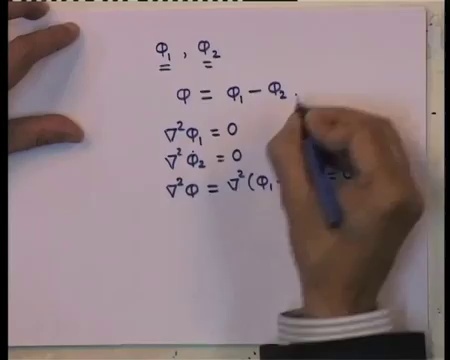 Φ₁ , Φ₂
Φ = Φ₁ − Φ₂
∇²Φ₁ = 0
∇²Φ₂ = 0
∇²Φ = ∇²(Φ₁ = 0